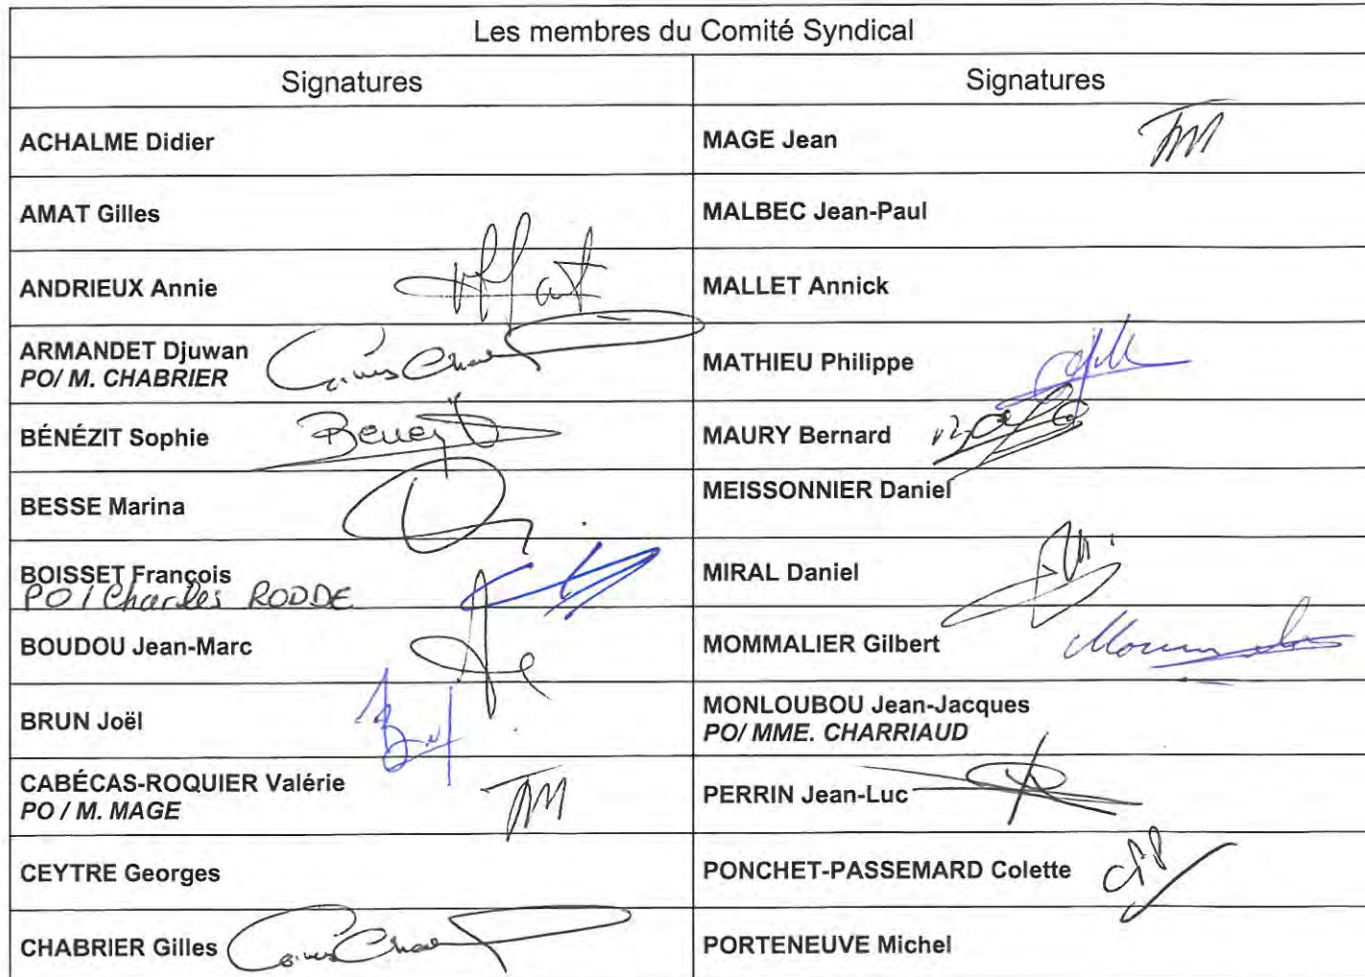 Les membres du Comité Syndical
Signatures
Signatures
ACHALME Didier
MAGE Jean
AMAT Gilles
MALBEC Jean-Paul
ANDRIEUX Annie
MALLET Annick
ARMANDET Djuwan
PO/ M. CHABRIER
MATHIEU Philippe
BÉNÉZIT Sophie
MAURY Bernard
BESSE Marina
MEISSONNIER Daniel
BOISSET François
PO / Charles RODDE
MIRAL Daniel
BOUDOU Jean-Marc
MOMMALIER Gilbert
BRUN Joël
MONLOUBOU Jean-Jacques
PO/ MME. CHARRIAUD
CABÉCAS-ROQUIER Valérie
PO / M. MAGE
PERRIN Jean-Luc
CEYTRE Georges
PONCHET-PASSEMARD Colette
CHABRIER Gilles
PORTENEUVE Michel